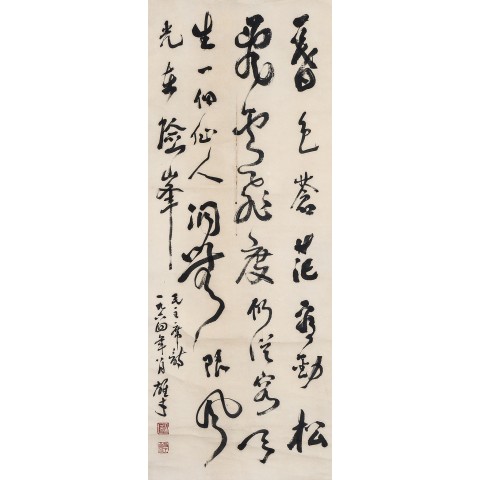 暮色蒼茫看勁松
亂雲飛度仍從容天
生一個仙人洞無限風
光在險峯
毛主席詩
一九六四年八月雄才